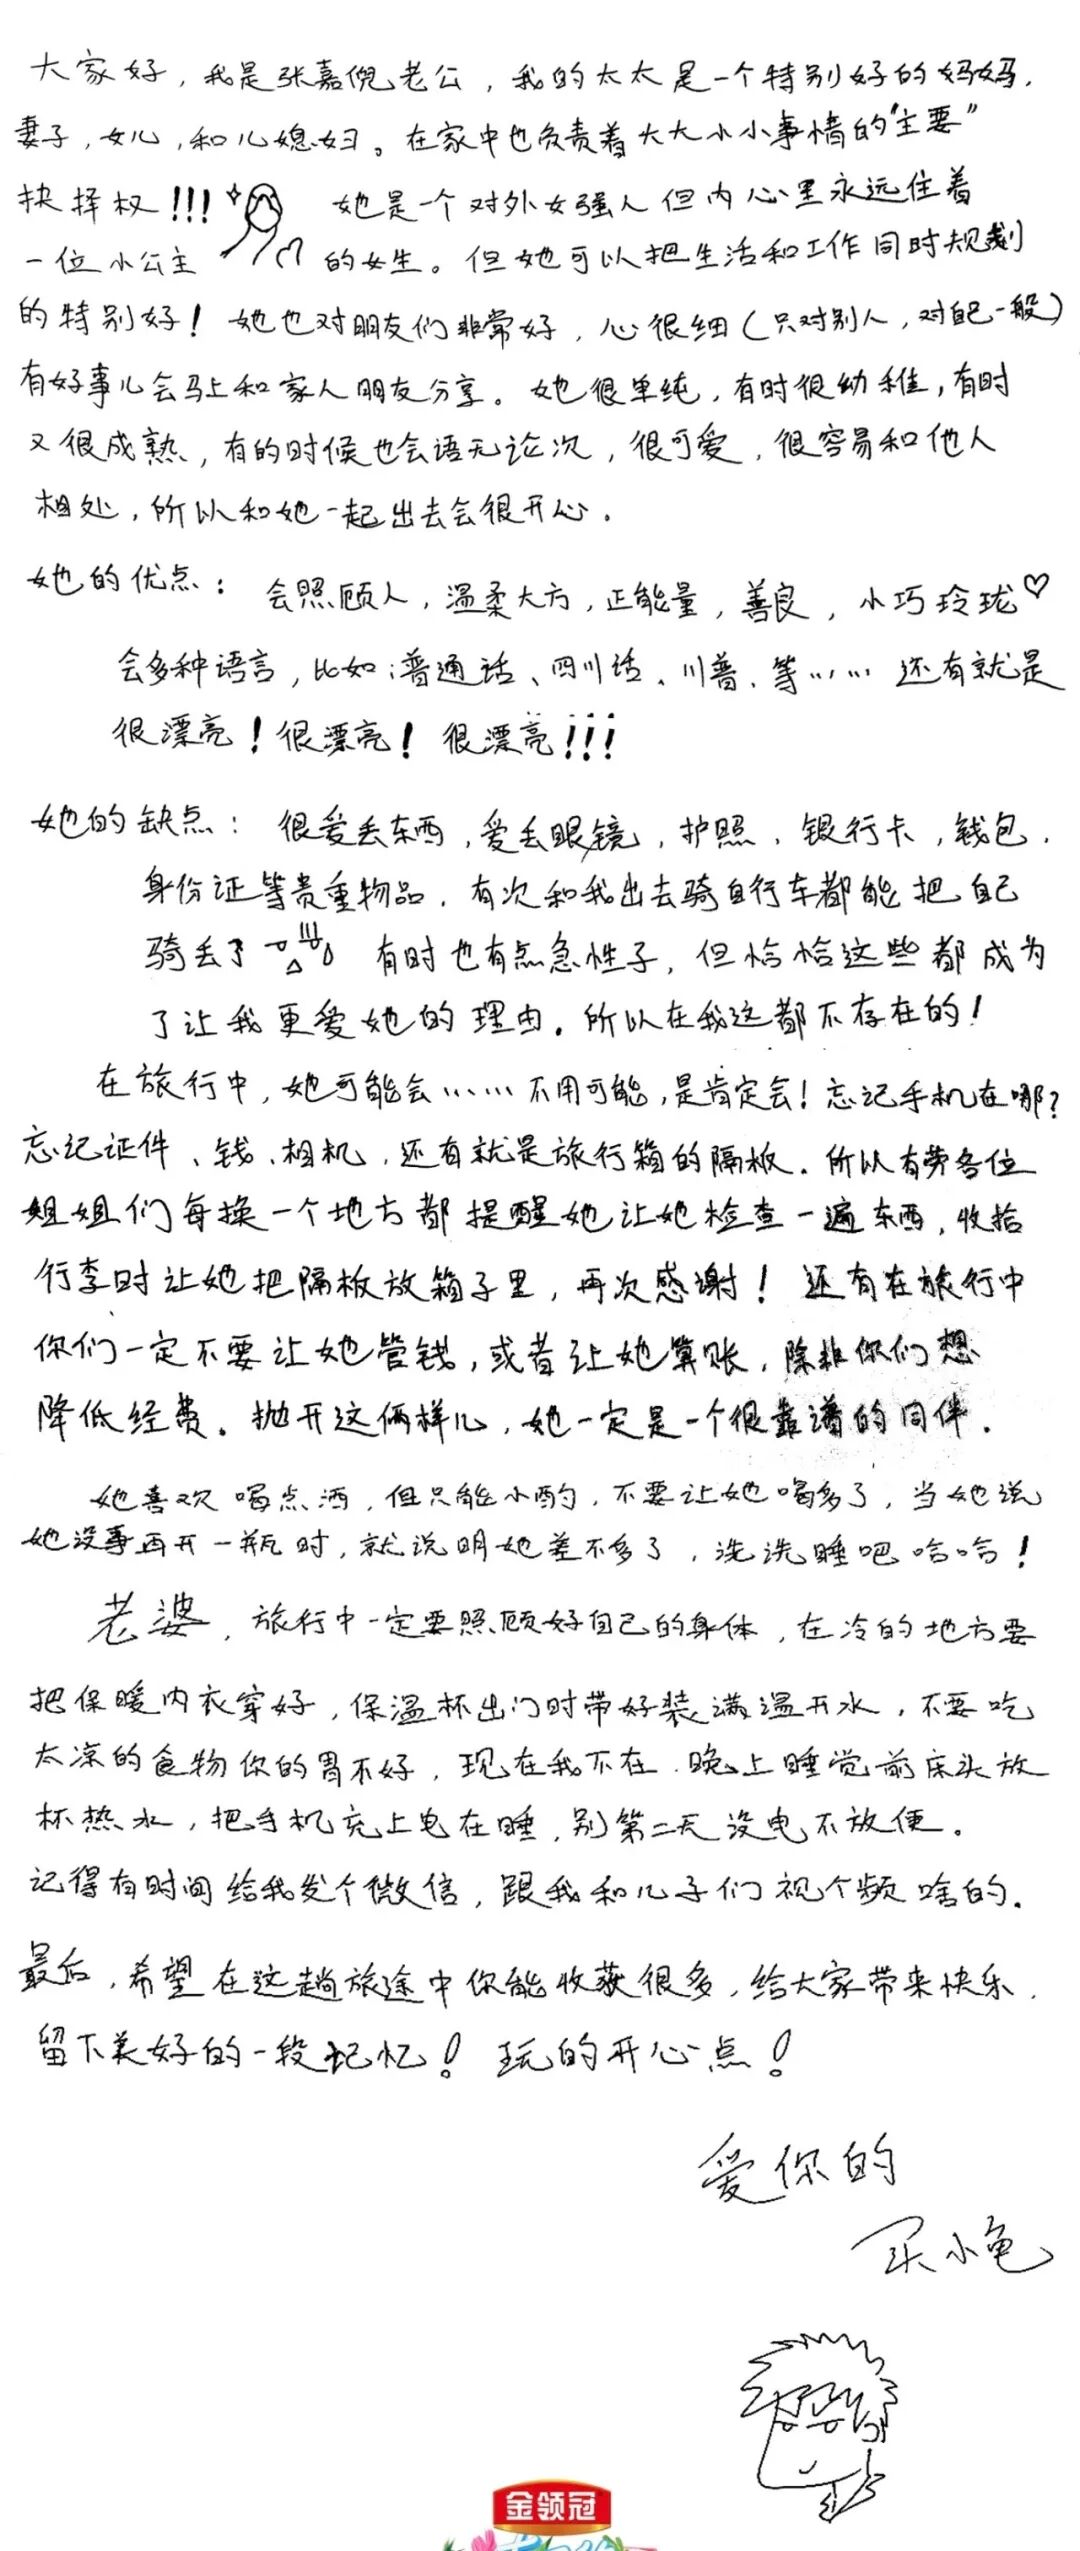 大家好，我是张嘉倪老公，我的太太是一个特别好的妈妈，
妻子，女儿，和儿媳妇。在家中也负责着大大小小事情的“主要”
抉择权!!! 她是一个对外女强人但内心里永远住着
一位小公主 的女生。但她可以把生活和工作同时规划
的特别好！她也对朋友们非常好，心很细（只对别人，对自己一般）
有好事儿会马上和家人朋友分享。她很单纯，有时很幼稚，有时
又很成熟，有的时候也会语无论次，很可爱，很容易和他人
相处，所以和她一起出去会很开心。
她的优点：会照顾人，温柔大方，正能量，善良，小巧玲珑♡
会多种语言，比如：普通话、四川话、川普、等…… 还有就是
很漂亮！很漂亮！很漂亮!!!
她的缺点：很爱丢东西，爱丢眼镜，护照，银行卡，钱包，
身份证等贵重物品，有次和我出去骑自行车都能把自己
骑丢了 有时也有点急性子，但恰恰这些都成为
了让我更爱她的理由。所以在我这都不存在的！
在旅行中，她可能会……不用可能，是肯定会！忘记手机在哪？
忘记证件、钱、相机，还有就是旅行箱的隔板。所以有劳各位
姐姐们每换一个地方都提醒她让她检查一遍东西，收拾
行李时让她把隔板放箱子里，再次感谢！还有在旅行中
你们一定不要让她管钱，或者让她算账，除非你们想
降低经费。抛开这俩样儿，她一定是一个很靠谱的同伴。
她喜欢喝点酒，但只能小酌，不要让她喝多了，当她说
她没事再开一瓶时，就说明她差不多了，洗洗睡吧哈哈！
老婆，旅行中一定要照顾好自己的身体，在冷的地方要
把保暖内衣穿好，保温杯出门时带好装满温开水，不要吃
太凉的食物你的胃不好，现在我不在，晚上睡觉前床头放
杯热水，把手机充上电在睡，别第二天没电不放便。
记得有时间给我发个微信，跟我和儿子们视个频啥的。
最后，希望在这趟旅途中你能收获很多，给大家带来快乐，
留下美好的一段记忆！玩的开心点！
爱你的
买小龟
金领冠